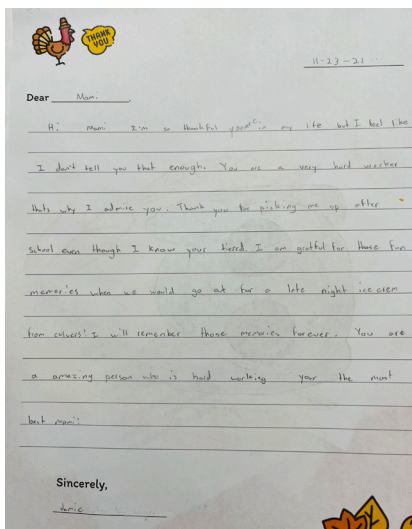 THANK
YOU
11-23-21
Dear Mami,
Hi Mami I'm so thankful your in my life but I feel like
I don't tell you that enough. You are a very hard worker
thats why I admire you. Thank you for picking me up after
school even though I know your tiered. I am gratful for those fun
memories when we would go at for a late night ice crem
from culvers! I will remember those memories forever. You are
a amazing person who is hard working your the most
best mami!
Sincerely,